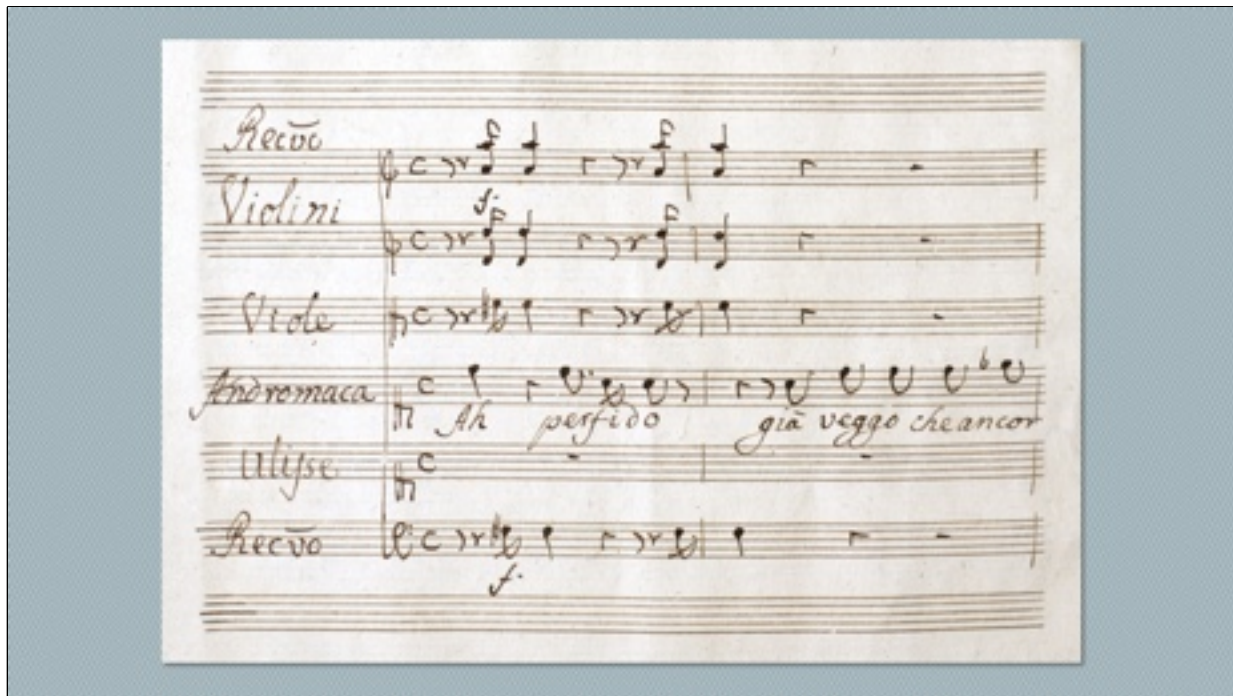 Recvo
Violini
f.
Viole
Andromaca
Ah perfido già veggo che ancor
Ulisse
Recvo
f.